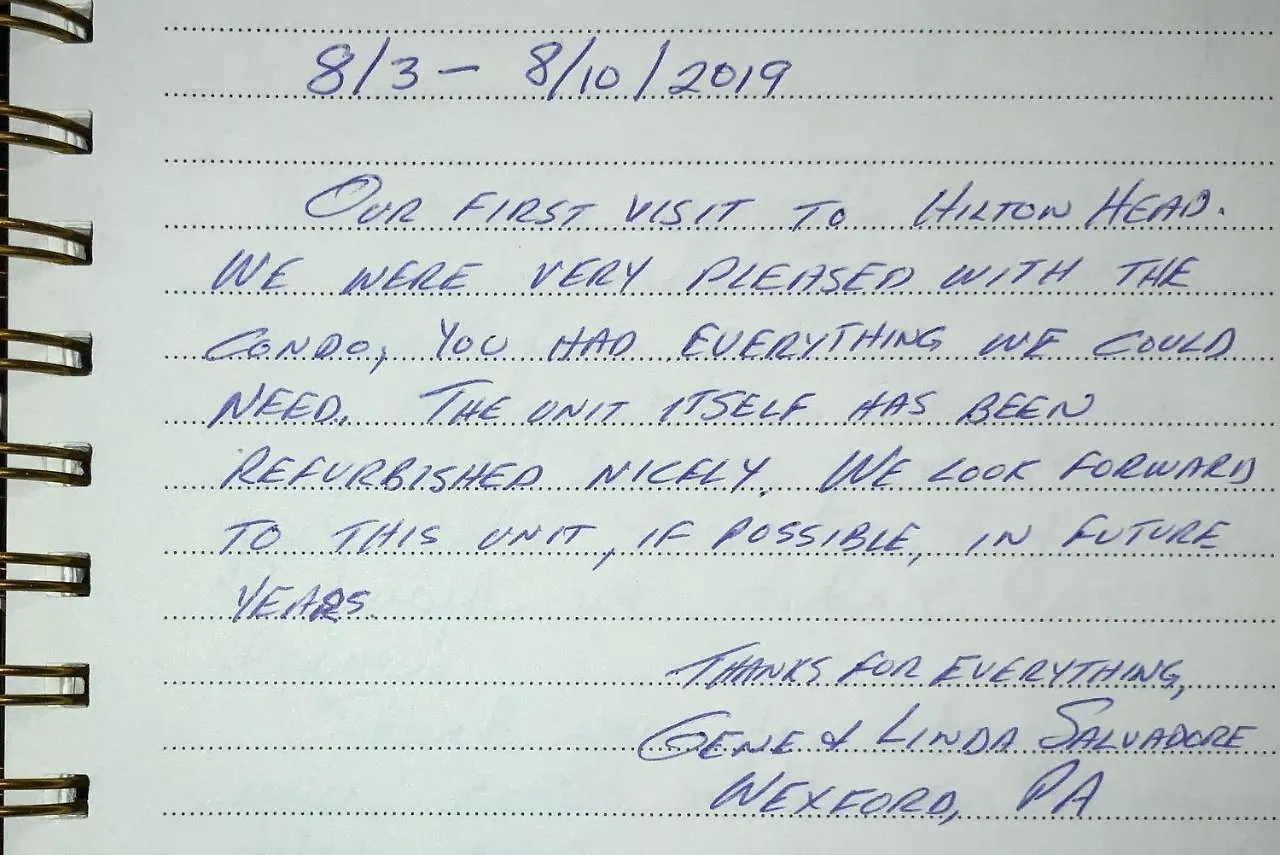 8/3 - 8/10/2019
OUR FIRST VISIT TO HILTON HEAD.
WE WERE VERY PLEASED WITH THE
CONDO, YOU HAD EVERYTHING WE COULD
NEED. THE UNIT ITSELF HAS BEEN
REFURBISHED NICELY. WE LOOK FORWARD
TO THIS UNIT, IF POSSIBLE, IN FUTURE
YEARS.
THANKS FOR EVERYTHING,
GENE & LINDA SALVADORE
WEXFORD, PA